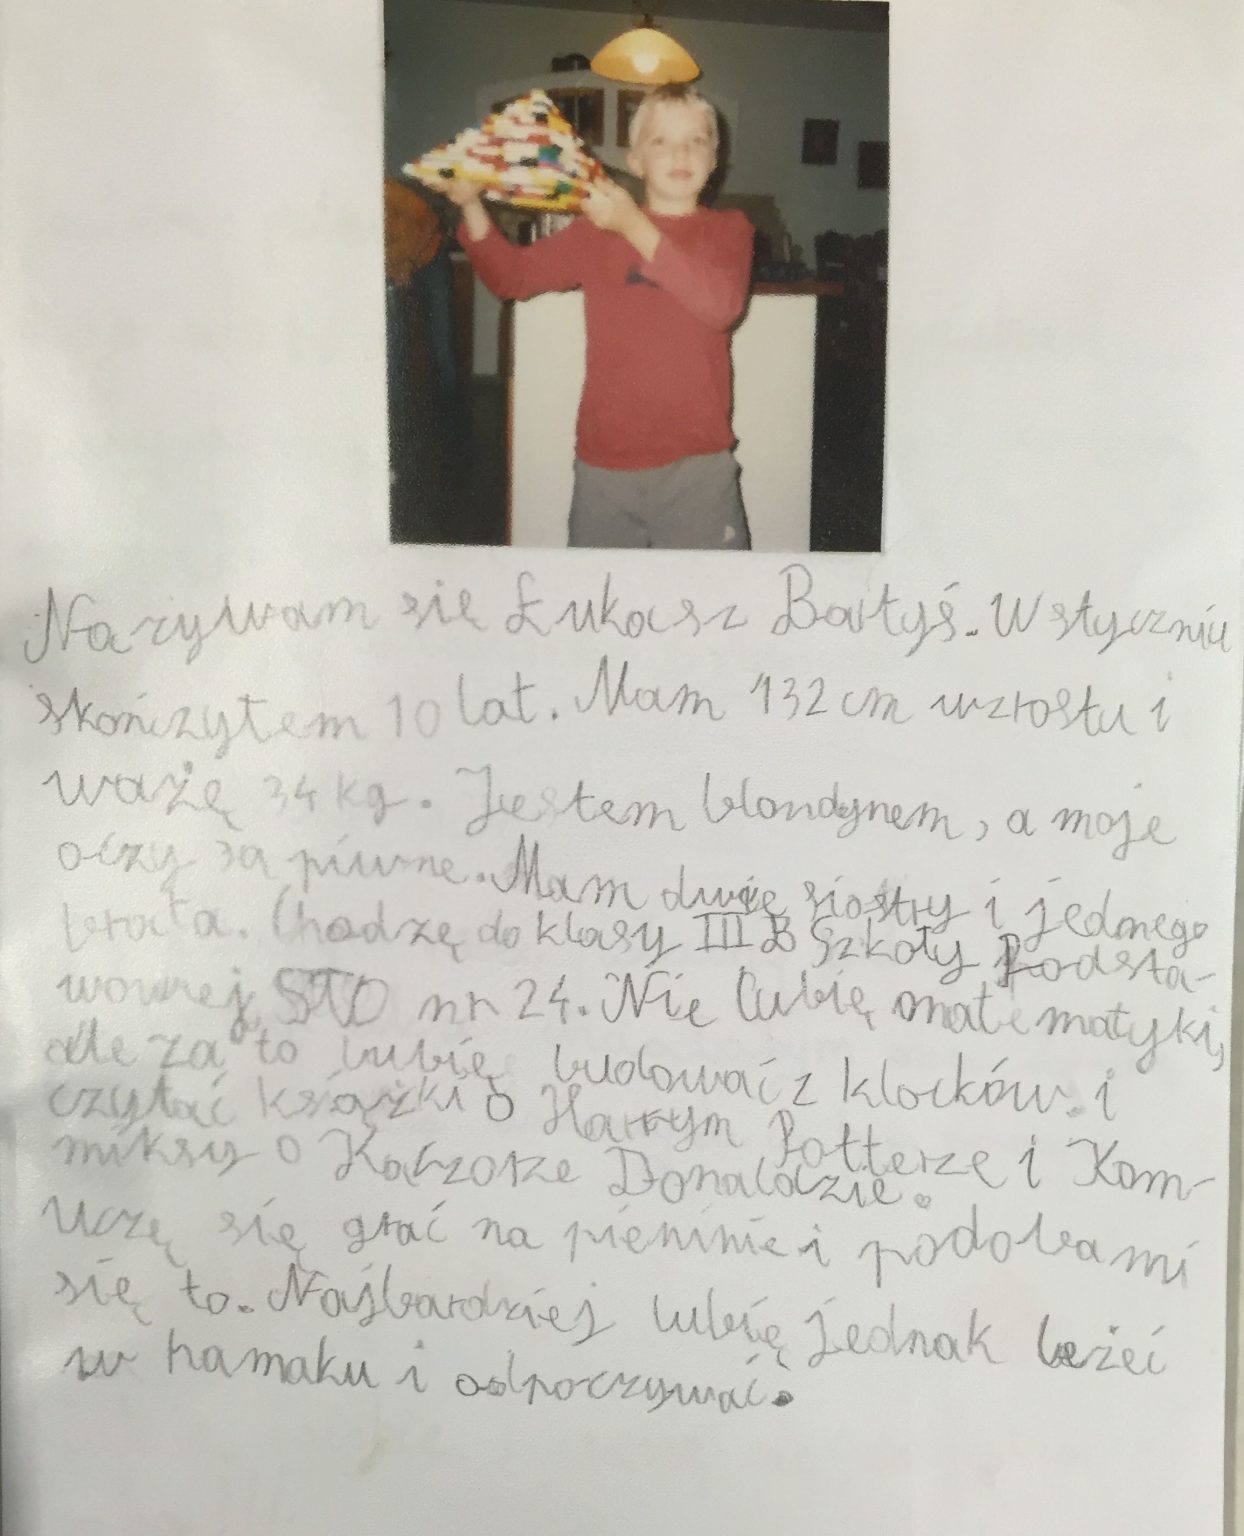 Nazywam się Łukasz Bartyś. W styczniu
skończyłem 10 lat. Mam 132 cm wzrostu i
ważę 34 kg. Jestem blondynem, a moje
oczy są piwne. Mam dwie siostry i jednego
brata. Chodzę do klasy III B Szkoły Podsta-
wowej STO nr 24. Nie lubię matematyki,
ale za to lubię budować z klocków i
czytać książki o Harrym Potterze i Kom-
miksy o Kaczorze Donaldzie.
Uczę się grać na pieninie i podoba mi
się to. Najbardziej lubię jednak leżeć
w hamaku i odpoczywać.